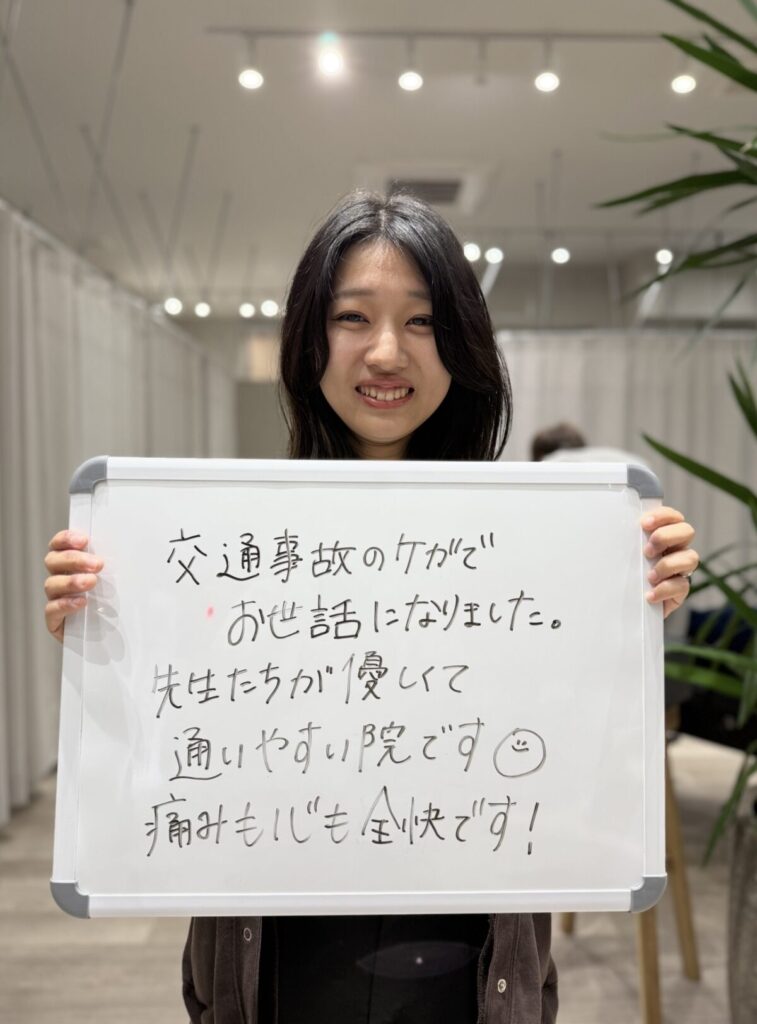 交通事故のケガで
お世話になりました。
先生たちが優しくて
通いやすい院です
痛みも心も全快です!